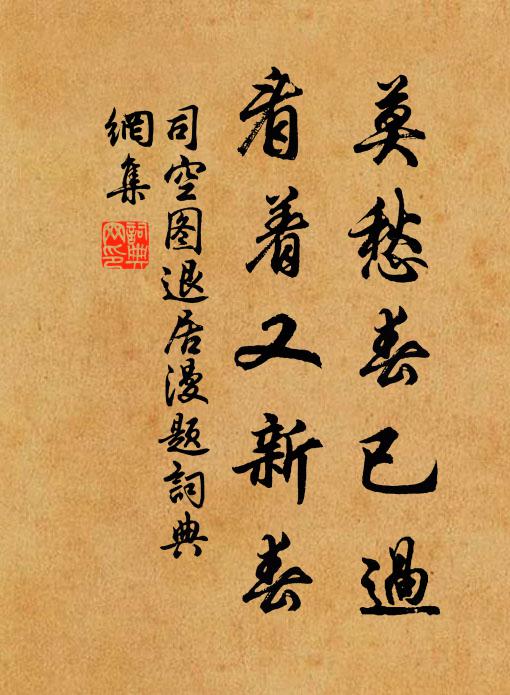 莫愁春已過
看着又新春
司空图退居漫题詞典
網集
詞典
网印